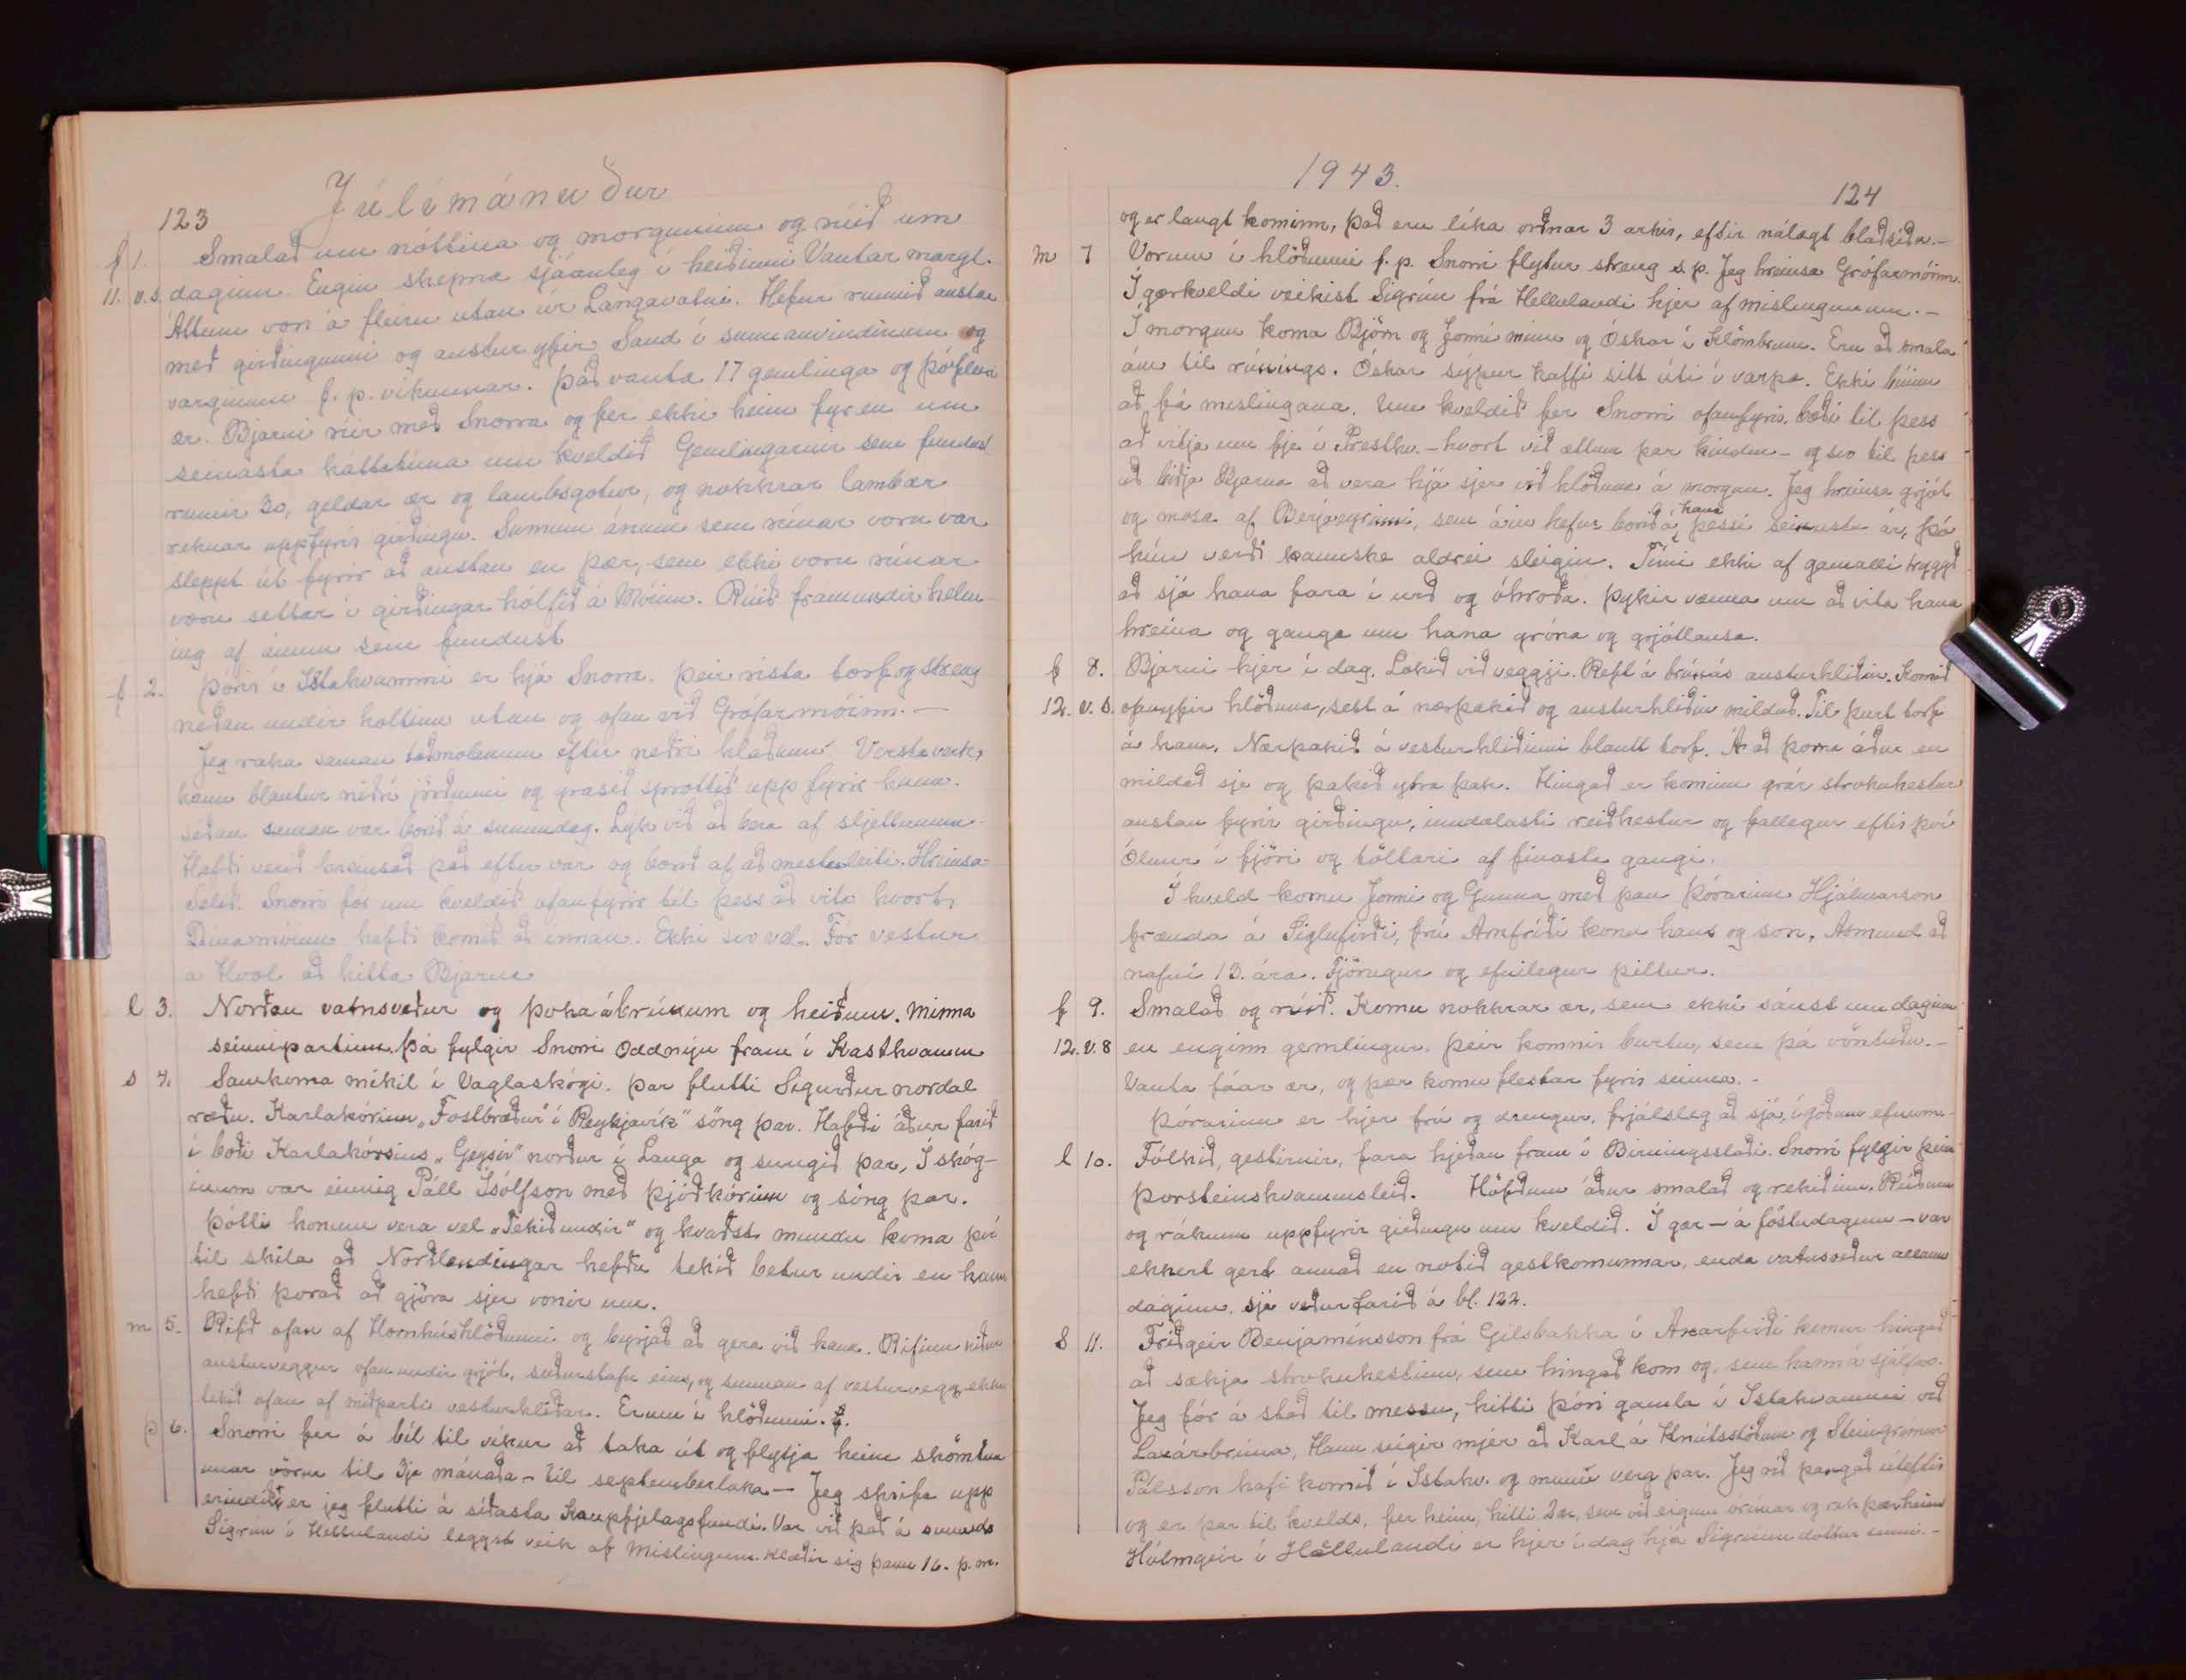 Júlímánuður
123
f 1. Smalað um nóttina og morguninn og rúið um
11. v.s. daginn. Engin skepna sjáanleg í heiðinni Vantar margt.
Áttum von á fleiru utan úr Langavatni. Hefur runnið austan
með girðingunni og austur yfir Sand í sunnanvindinum og
varginum f. p. vikunnar. Það vanta 17 gemlinga og þó fleiri
ær. Bjarni rúir með Snorra og fer ekki heim fyr en um
seinasta háttatíma um kveldið Gemlingarnir sem fundust
rúnir 30, geldar ær og lambsgotur, og nokkrar lambær
reknar uppfyrir girðingu. Sumum ánum sem rúnar voru var
sleppt út fyrir að austan en þær, sem ekki voru rúnar
voru settar í girðingar hólfið á Móinn. Rúið framundir helm
ing af ánum sem fundust
f 2. Þórir í Ístahvammi er hjá Snorra. Þeir rista torf og streng
neðan undir holtinu utan og ofan við Grófarmóinn. –
Jeg raka saman taðmolanum eftir neðri hlaðann Versta verk,
hann blautur niðrí jörðunni og grasið sprottið upp fyrir hann.
síðan seman var borið á sunnudag. Lyk við að bera af sljettunum
Hafði verið hreinsað það eftir var og borið af að mestu leiti. Hreinsa
Snorri fór um kveldið ofanfyrir til þess að vita hvort
hefði komið að innan. Ekki svo vel. Fór vestur
a Hvol að hitta Bjarna
l 3. Norðan vatnsveður og þoka á brúnum og heiðum. Minna
seinnipartinn. Þá fylgir Snorri Oddnýju fram í Kasthvamm
s 4. Samkoma mikil í Vaglaskógi. Þar flutti Sigurður nordal
ræðu. Karlakórinn „Fostbræður" í Reykjavík" söng þar. Hafði áður farið
í boði Karlakórsins „Geysir" norður í Lauga og sungið þar, Í skóg-
inum var einnig Páll Ísólfson með þjóðkórinn og söng þar.
Þótti honum vera vel „Tekið undir" og kvaðst mundu koma því
til skila að Norðlendingar hefðu tekið betur undir en hann
hefði þorað að gjöra sjer vonir um.
m 5. Rifið ofan af Hornhúshlöðunni og byrjað að gera við hana. Rifinn niður
austurveggur ofan undir grjót, suðurstafn eins, og sunnan af vesturvegg, ekki
tekið ofan af miðparti vesturhliðar. Erum í hlöðunni.
þ 6. Snorri fer á bíl til víkur að taka út og flytja heim skömtun
unar vörur til 3ja mánaða – til septemberloka – Jeg skrifa upp
erindið er jeg flutti á síðasta Kaupfjelagsfundi. Var við það á sunnuds
Sigrún í Hellulandi leggst veik af Mislingum. Klæðir sig þann 16. þ. m.
1943.
124
og er langt kominn, það eru líka orðnar 3 arkir, eftir nálægt blaðsíðu. –
m 7 Vorum í hlöðunni f. p. Snorri flytur streng s. p. Jeg hreinsa Grófarmóinn.
Í gærkveldi veikist Sigrún frá Hellulandi hjer af mislingunum. –
Í morgun koma Björn og Jonni minn og Óskar í Klömbrum. Eru að smala
ám til rúnings. Óskar sýpur kaffi sitt úti í varpa. Ekki búinn
að fá mislingana. Um kveldið fer Snorri ofanfyrir, bæði til þess
að vitja um fje í Presthv. – hvort við ættum þar kindur – og svo til þess
að biðja Bjarna að vera hjá sjer við hlöðuna á morgun. Jeg hreinsa grjót
og mosa af Berjaeyrinni, sem áin hefur borið á hana þessi seinustu ár, þó
hún verði kannske aldrei slegin. Tími ekki af gamalli tryggð
að sjá hana fara í urð og óhroða. Þykir vænna um að vita hana
hreina og ganga um hana gróna og grjótlausa.
f 8. Bjarni hjer í dag. Lokið við veggi. Reft á brúnás austurhliðin. Komið
12. v. s. ofanyfir hlöðuna, sett á nærþakið og austurhliðin milduð. Til þurt torf
á hana. Nærþakið á vesturhliðinni blautt torf. Á að þorna áður en
mildað sje og þakið ytra þak. Hingað er kominn grár strokuhestur
austan fyrir girðingu, inndælasti reiðhestur og fallegur eftir því
Ólmur í fjöri og töltari af finasta gangi.
Í kveld komu Jonni og Gunna með þau Þórarinn Hjálmarson
frænda á Siglufirði, frú Arnfríði konu hans og son, Asmund að
nafni 13. ára. Fjörugur og efnilegur piltur.
f 9. Smalað og rúið. Komu nokkrar ær, sem ekki sáust um daginn
12. v. 8 en enginn gemlingur. Þeir komnir burtu, sem þá vöntuðu. –
Vanta fáar ær, og þær komu flestar fyrir seinna. –
Þórarinn er hjer frú og drengur, frjálsleg að sjá, í góðum efnum. –
l 10. Fólkið, gestirnir, fara hjeðan fram í Birningsstaði. Snorri fylgir þeim
Þorsteinshvammsleið. Höfðum áður smalað og rekið inn. Rúðum
og rákum uppfyrir girðingu um kveldið. Í gær – á föstudaginn – var
ekkert gert annað en notið gestkomunnar, enda vatnsveður allann
daginn, sjá veðurfarið á bl. 122.
S 11. Friðgeir Benjamínsson frá Gilsbakka í Axarfirði kemur hingað
að sækja strokuhestinn, sem hingað kom og, sem hann á sjálfur.
Jeg fór á stað til messu, hitti Þóri gamla í Ístahvammi við
Laxárbrúna, Hann segir mjer að Karl á Knútsstöðum og Steingrímur
Pálsson hafi komið í Ístahv. og munu verg þar. Jeg rið þangað úteftir
og er þar til kvelds. fer heim, hitti 2 ær, sem við eigum órúnar og rak þær heim
Hólmgeir í Hellulandi er hjer í dag hjá Sigrúnu dóttur sinni. –